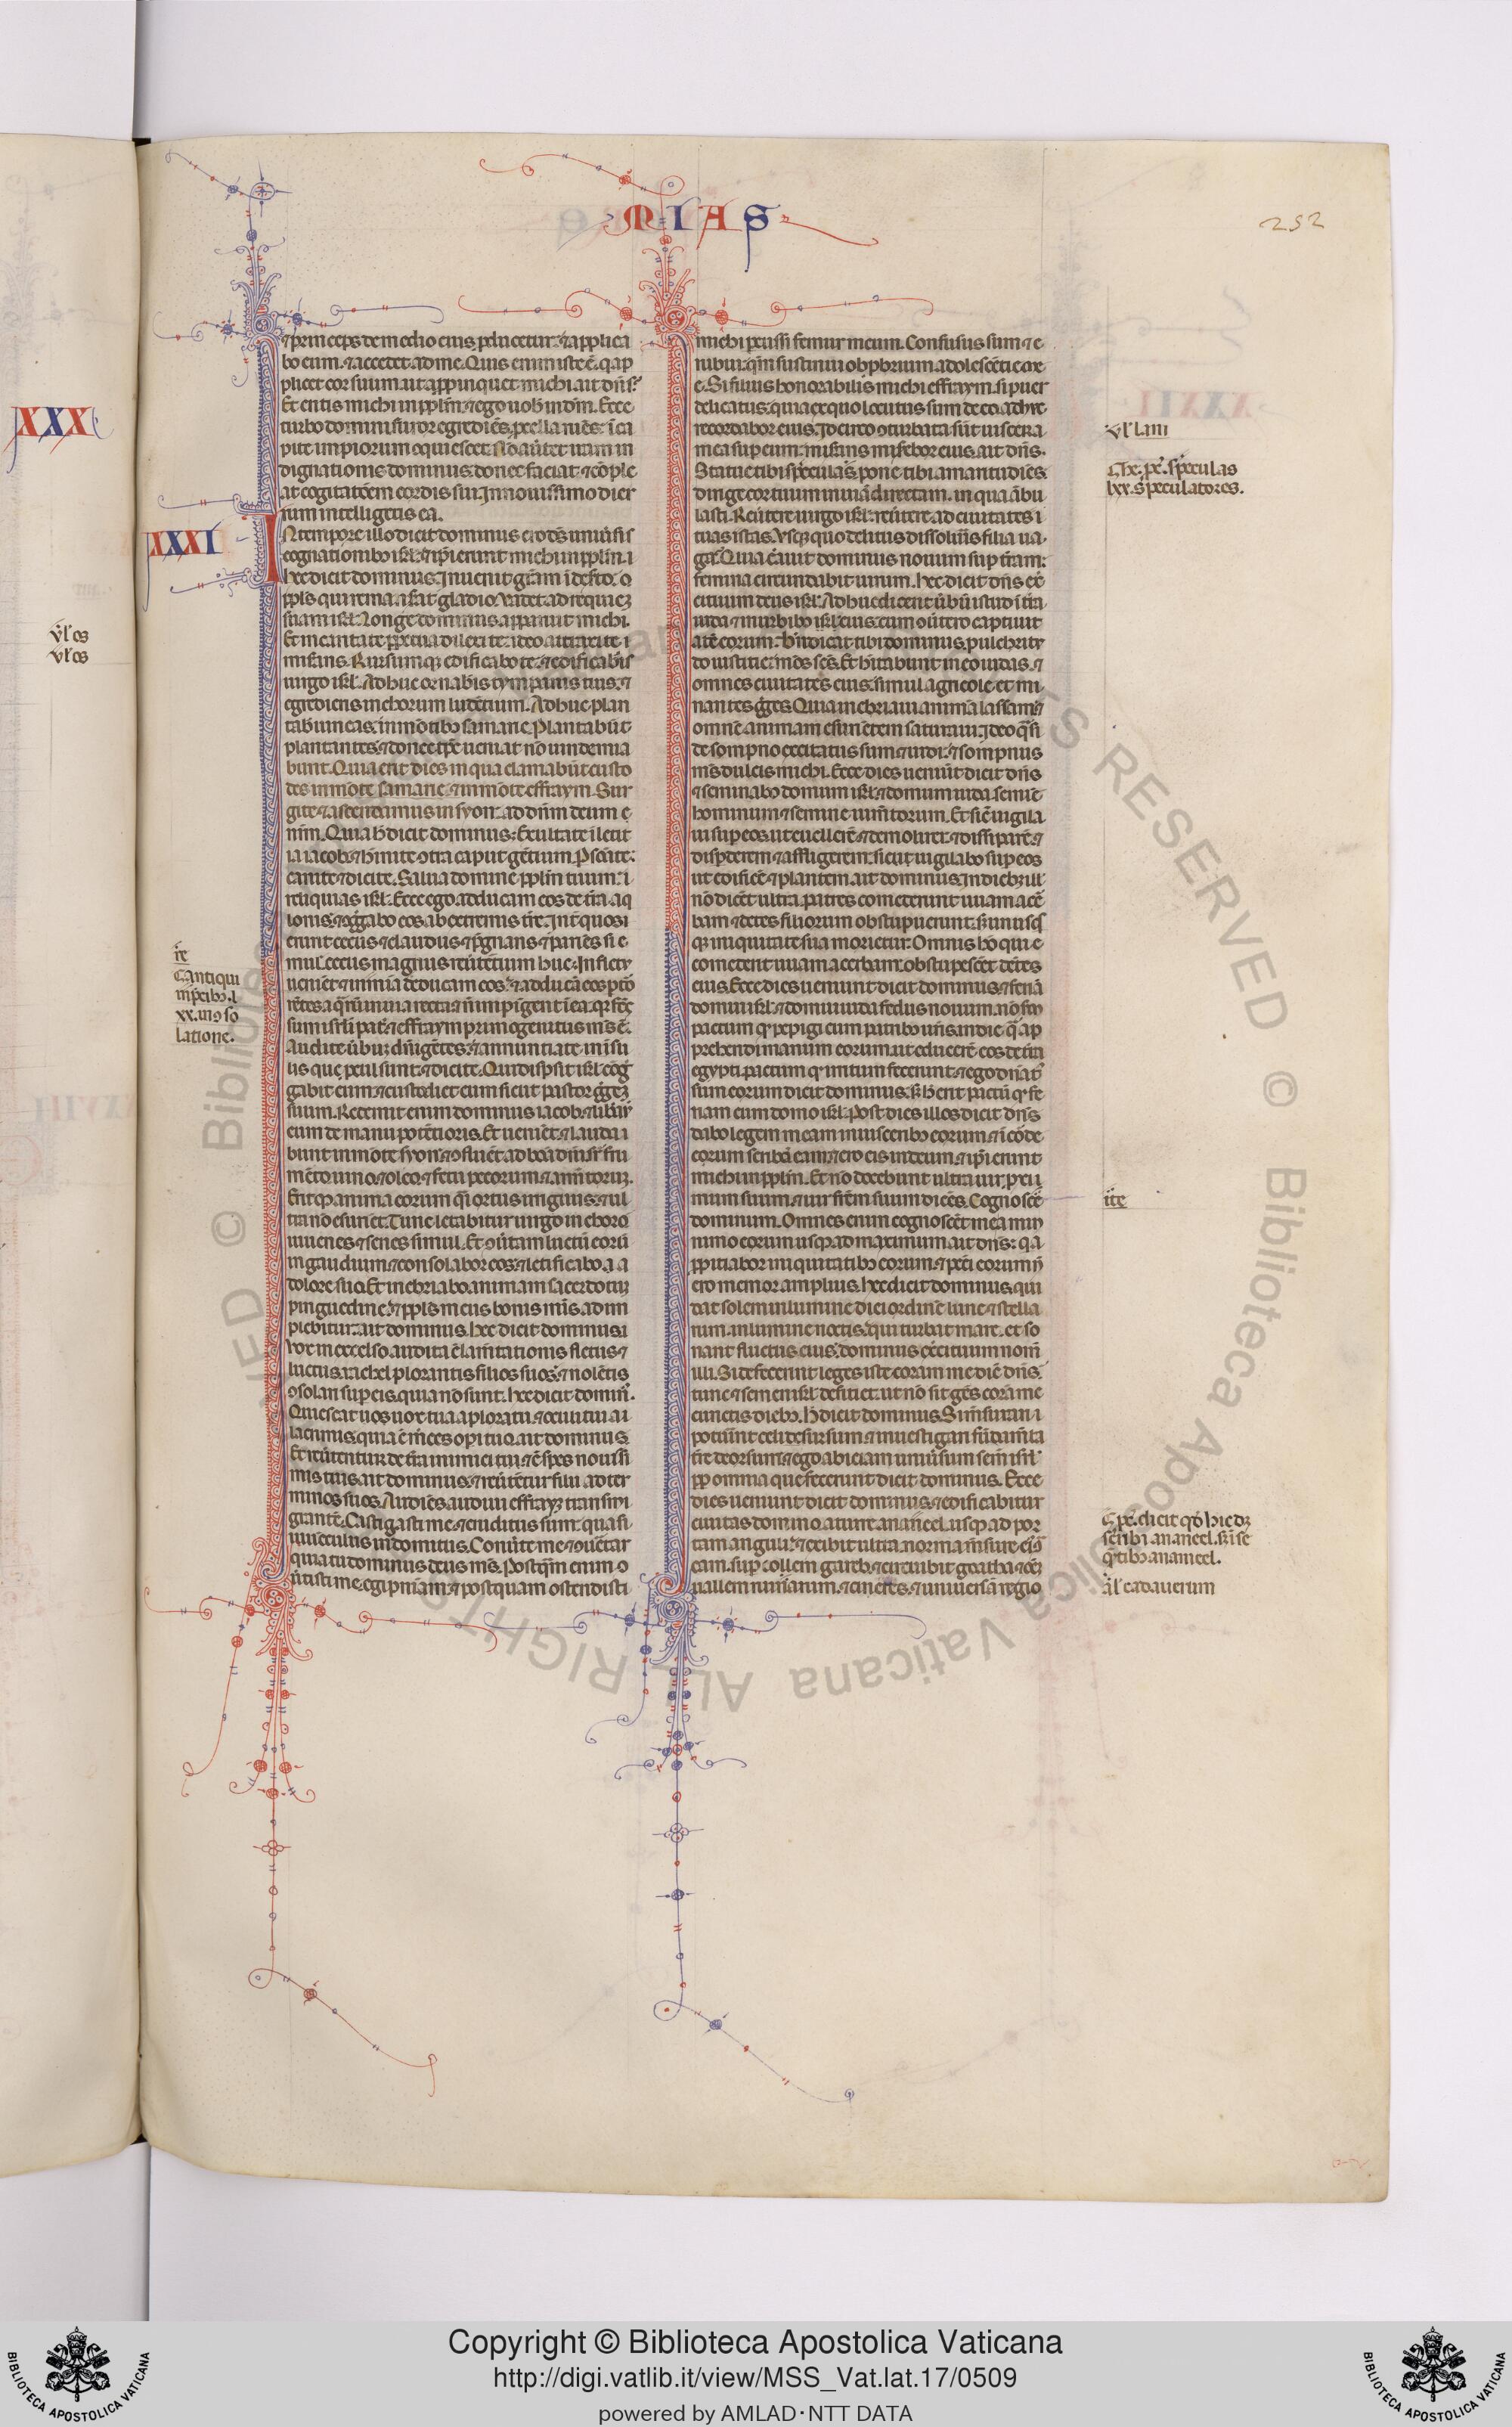 MIAS
252
XXX
XXXI
ul' os
ul' os
⁊ princeps de medio eius producetur. ⁊ applica
bo eum. ⁊ accedet ad me. Quis enim iste ē. q̇ ap
plicet cor suum. ut appropinquet michi. ait dn̄s?
Et eritis michi in pplm̄. ⁊ ego uob̄ in dm̄. Ecce
turbo domini furor egrediēs. procella ruēs. ī ca
pite impiorum cōquiescet. Nō auertet iram in
dignationis dominus. donec faciat ⁊ cōple
at cogitatōem cordis sui. In nouissimo dier
rum intelligetis ea.
IN tempore illo dicit dominus ero dēus uniuersis
cognationibꝫ isrl. ⁊ ip̄i erunt michi in pplm̄.
hec dicit dominus. Inuenit gr̄am ī deserto.
ppls qui remanserat gladio. Vadet ad requiē
suam isrl. Longe dominus apparuit michi.
Et in caritate perpetua dilexi te. ideo attraxi te
miserans. Rursumqꝫ edificabo te. ⁊ edificaberis
uirgo isrl. Adhuc ornaberis tympanis tuis. ⁊
egredieris in chorum ludētium. Adhuc plan
tabis uineas. in mōtibꝫ samarie. Plantabūt
plantantes. ⁊ donec tp̄s ueniat nō uindemia
bunt. Quia erit dies in qua clamabūt custo
des in mōte samarie. ⁊ in mōte effraym. Sur
gite ⁊ ascendamus in syon. ad dn̄m deum
nr̄m. Quia h̄ dicit dominus. Exultate ī letit
ia iacob. ⁊ hinnite ꝯtra caput gētium. Psonate.
canite ⁊ dicite. Salua domine pplm̄ tuum.
reliquias isrl. Ecce ego adducam eos de tr̄a aq
lonis. ⁊ cōgregabo eos ab extremis tr̄e. Inter quos
erunt cecus ⁊ claudus. ⁊ pregnans ⁊ pariēs si
mul. cetus magnus reuertētium huc. In fletu
re
C Antiqui
in p̄cibꝫ. l
xx. in ꝯso
latione.
uenient ⁊ in mīa reducam eos. ⁊ adducā eos per to
rētes aquarum in uia recta ⁊ nō impingent ī ea. q̇ factus
sum isrli pater. ⁊ effraym primogenitus ms̄ ē.
Audite uerbū dn̄i gētes. ⁊ annuntiate in īsu
lis que procul sunt ⁊ dicite. Qui dispersit isrl cōgre
gabit eum ⁊ custodiet eum sicut pastor gregē
suum. Redemit enim dominus iacob. ⁊ liberauit
eum de manu potētioris. Et uenient ⁊ lauda
bunt in mōte syon. ⁊ ꝯfluent ad bona dn̄i super fru
mēto uino ⁊ oleo. ⁊ fetu pecorum ⁊ armētorum.
Eritqꝫ anima eorum q̇i ortus irriguus. ⁊ ul
tra nō esurient. Tunc letabitur uirgo in choro
iuuenes ⁊ senes simul. Et ꝯuertam luctū eorū
in gaudium ⁊ consolabor eos. ⁊ letificabo a
dolore suo. Et inebriabo animam sacerdotum
pinguedine. ⁊ ppls meus bonis meis adim
plebitur. ait dominus. hec dicit dominus.
Vox in excelso audita ē lamētationis fletus ⁊
luctus. rachel plorantis filios suos. ⁊ nolētis
ꝯsolari super eis. quia nō sunt. hec dicit domin'.
Quiescat uox tua a ploratu. ⁊ oculi tui a
lacrimis. quia ē merces operi tuo. ait dominus.
Et reuertentur de tr̄a inimici tui. ⁊ ē spes nouissi
mis tuis ait dominus. ⁊ reuertētur filii ad ter
minos suos. Audiēs audiui effraym transmi
grantē. Castigasti me. ⁊ eruditus sum quasi
iuuenculus indomitus. Conuerte me ⁊ ꝯuertar
quia tu dominus deus ms̄. Postq̄m enim ꝯ
uertisti me. egi pn̄iam. ⁊ postquam ostendisti
michi percussi femur meum. Confusus sum ⁊ e
rubui. qm̄ sustinui obprbrium adolescētie me
e. Si filius honorabilis michi effraym. si puer
delicatus. quia ex quo locutus sum de eo. adhuc
recordabor eius. Idcirco ꝯturbata sūt uiscera
mea super eum. miserans miserebor eius. ait dn̄s.
Statue tibi speculas. pone tibi amaritudiēs.
dirige cor tuum in uiā directam. in qua ābu
lasti. Reuertere uirgo isrl. reuertere ad ciuitates
tuas istas. Vsqꝫ quo delitiis dissolueris filia ua
ga? Quia creauit dominus nouum super tr̄am:
femina circundabit uirum. hec dicit dn̄s ex
ercituum deus isrl. Adhuc dicent uerbū istud ī tr̄a
iuda ⁊ in urbibꝫ eius. cum ꝯuertero captiuit
atē eorum. Bn̄dicat tibi dominus. pulchritu
do iustitie. mōs sc̄s. Et h̄itabunt in eo iudas. ⁊
omnes ciuitates eius simul. agricole et mi
nantes greges. Quia inebriaui animā lassam. ⁊
omnē animam esurientem saturaui. Ideo q̄si
de sompno excitatus sum. ⁊ uidi. ⁊ sompnus
ms̄ dulcis michi. Ecce dies ueniūt dicit dn̄s
⁊ seminabo domum isrl ⁊ domum iuda semīe
hominum ⁊ semine iumētorum. Et sicut uigila
ui super eos ut euellerē ⁊ demolirer. ⁊ dissiparē ⁊
disperderem ⁊ affligerem. sic uigilabo super eos
ut edificē ⁊ plantem. ait dominus. In diebꝫ ill'
nō dicēt ultra. patres comederunt uuam acer
bam ⁊ dētes filiorum obstupuerunt. sꝫ unusqs
qꝫ in iniquitate sua morietur. Omnis hō qui
comederit uuam acerbam. obstupescēt dētes
eius. Ecce dies ueniunt dicit dominus. ⁊ feriā
domui isrl. ⁊ domui iuda fedus nouum. nō secundum
pactum qd̄ pepigi cum patribꝫ uestris. in die q̄ ap
prehendi manum eorum. ut educerē eos de tr̄a
egypti. pactum qd̄ irritum fecerunt. ⁊ ego dn̄atus
sum eorum dicit dominus. Sꝫ h̄ erit pactū qd̄ fe
riam cum domo isrl. Post dies illos dicit dn̄s
dabo legem meam in uisceribꝫ eorum. ⁊ ī corde
eorum scribā eam. ⁊ ero eis in deum. ⁊ ip̄i erunt
michi in pplm̄. Et nō docebunt ultra uir proxi
mum suum. ⁊ uir frēm suum dicēs. Cognosce
dominum. Omnes enim cognoscēt me a mini
mo eorum usqꝫ ad maximum. ait dn̄s: q̇a
ppitiabor iniquitatibꝫ eorum. ⁊ peccati eorum nō
ero memor amplius. hec dicit dominus. qui
dat solem in lumine diei. ordinē lune ⁊ stella
rum in lumine noctis. qui turbat mare. et so
nant fluctus eius. dominus exercituum nomen
illi. Si defecerint leges iste coram me dicit dn̄s.
tunc ⁊ semen isrl deficiet. ut nō sit gēs corā me
cunctis diebꝫ. h̄ dicit dominus. Si mensurari
potuerint celi desursum. ⁊ inuestigari fūdamēta
tr̄e deorsum. ⁊ ego abiciam uniuersum semen isrl
pp omnia que fecerunt dicit dominus. Ecce
dies ueniunt dicit dominus. ⁊ edificabitur
ciuitas domino. a turre ananeel. usqꝫ ad por
tam anguli. ⁊ exibit ultra norma mensure ei'
eam. super collem gareb. ⁊ circuibit goatha ⁊ oēm
uallem ruinarum. ⁊ cineres. ⁊ uniuersā regio
ul' lani
C Ix. pe. speculas
lxx. speculatores.
ite
C pe. dicit qd̄ hic dꝫ
scribi ananeel. sꝫ ī se
q̄tibꝫ anameel.
al' cadauerum
© Biblioteca Apostolica Vaticana ALL RIGHTS RESERVED
Copyright © Biblioteca Apostolica Vaticana
http://digi.vatlib.it/view/MSS_Vat.lat.17/0509
powered by AMLAD·NTT DATA
BIBLIOTECA APOSTOLICA VATICANA
BIBLIOTECA APOSTOLICA VATICANA